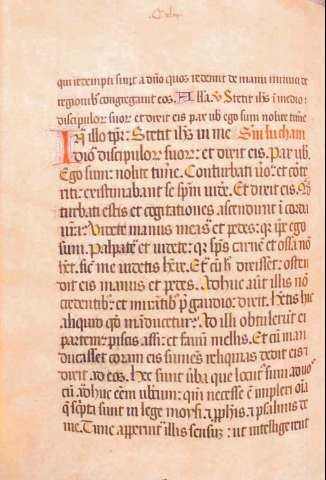 qui redempti sunt a dño quos redemit de manu inimici de
regionib; congregauit eos. Alla. V Stetit ih̅s i medio:
discipulor̄ suor̄ et dixit eis pax uob ego sum nolite time
In illo tp̄r: Stetit ih̅s in me Sm lucham
dio discipulor̄ suor̄: et dixit eis. Pax uob.
Ego sum: nolite time. Conturbati uo: et cōte
riti: existimabant se sp̄m uide. Et dixit eis. Qͥd
turbati estis et cogitationes ascendunt i corda
ur̄a: Videte manus meas et pedes: qr ip̄e ego
sum. Palpate et uidete: qr sp̄s carnē et ossa nō
h̄et. sic me uidetis h̄ere. Et cū h̄ dixisset: osten
dit eis manus et pedes. Adhuc aut̄ illis nō
credentib; et mirātib; p̄ gaudio: dixit. H̄etis hic
aliquid qd manducetur: At illi obtulerūt ei
partem piscis assi: et fauum mellis. Et cū man
ducasset coram eis sumēs reliquias dedit eis:
dixit ad eos. Hec sunt ūba que locut̄ sum ad uos
cū adhuc eēm uobiscum: qm̄ necesse ē impleri oīa
q̄ sc̄pta sunt in lege moysi. ⁊ ꝓph̄is. ⁊ psalmis de
me. Tunc apperuit illis sensuʒ: ut intelligerent